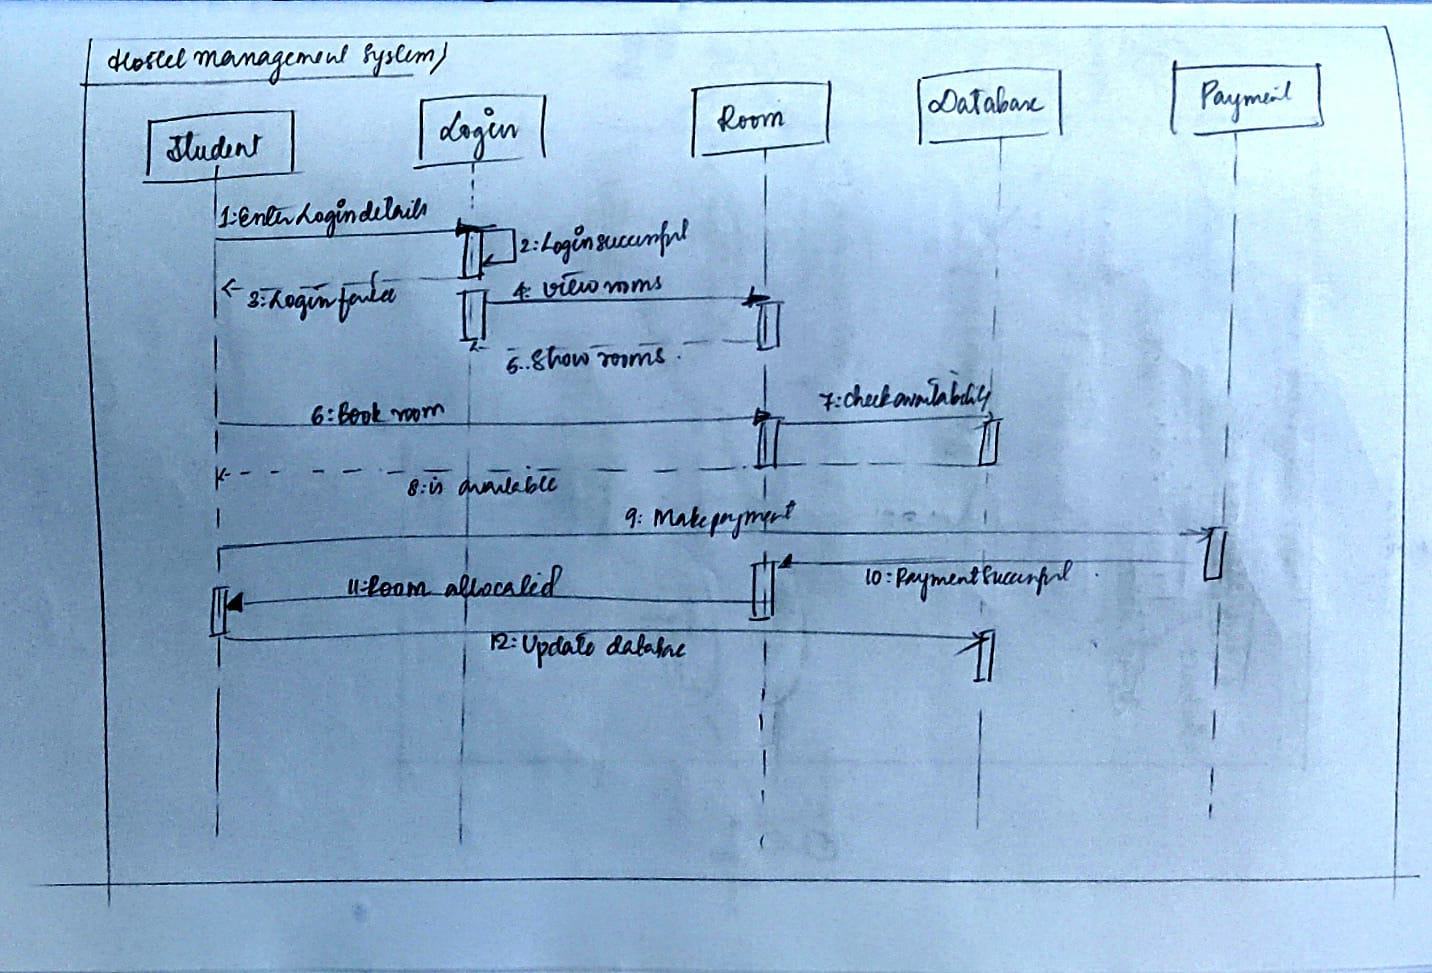 Hostel management system
Student
Login
Room
Database
Payment
1:Enter Login details
2:Login successful
3:Login failed
4: view rooms
5..Show rooms.
6:Book room
7:check availability
8:is available
9: Make payment
10:Payment successful
11:Room allocated
12:Update database